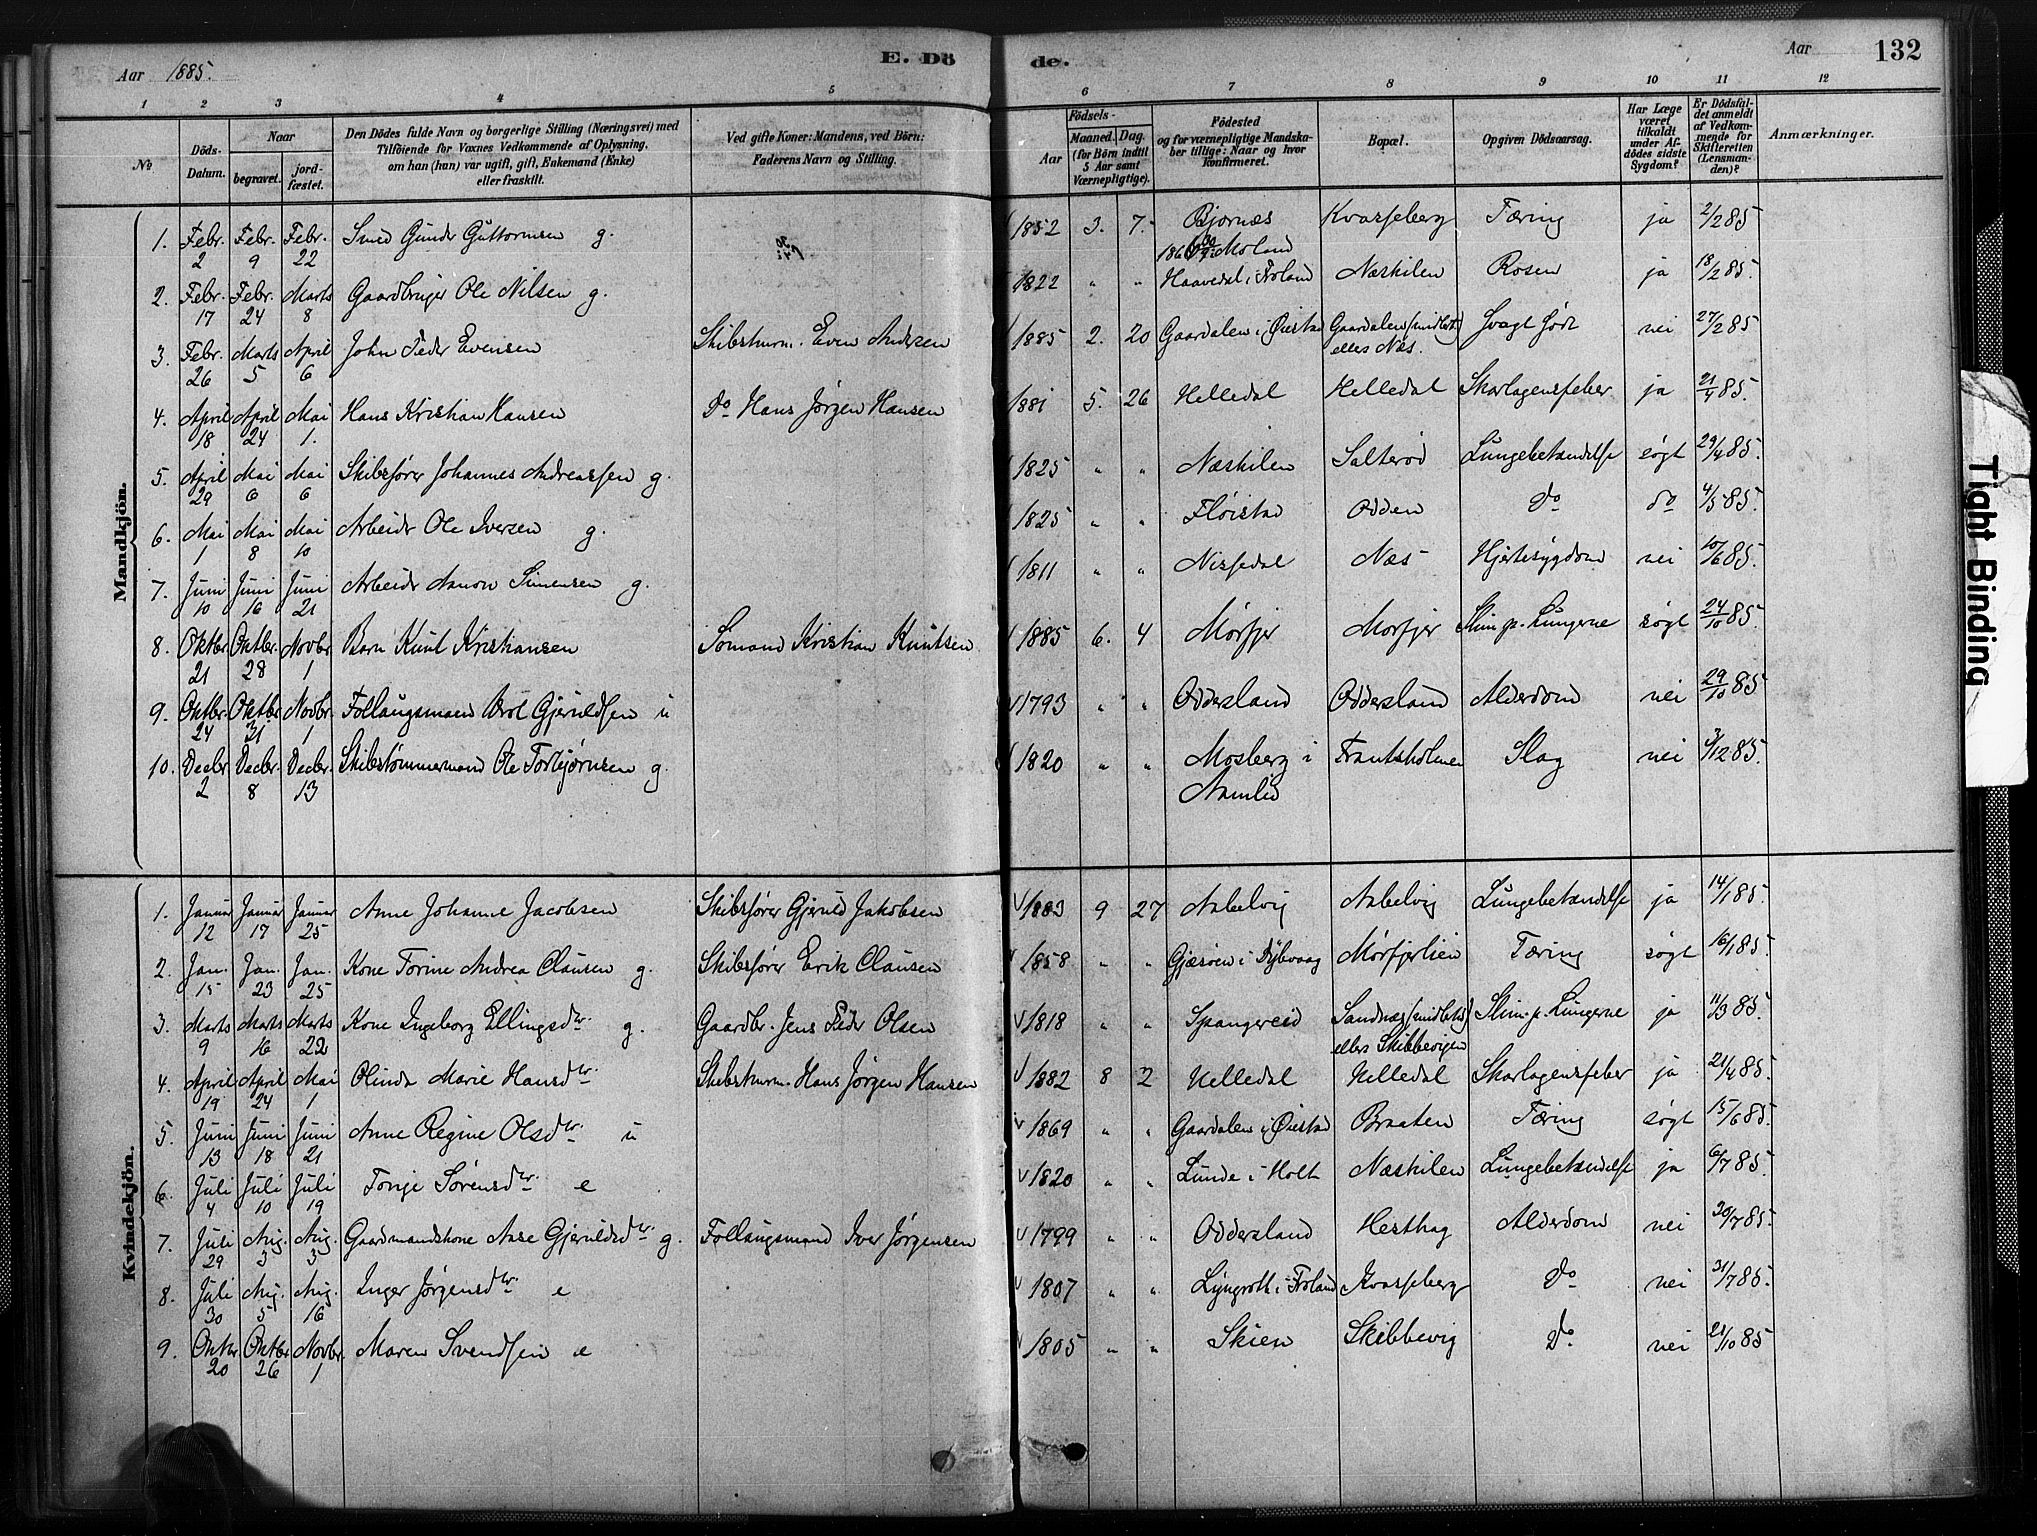 Aar 1885.
E. Dö
de.
Aar
132
1 2 3 4 5 6 7 8 9 10 11 12
№
Döds-Datum.
Naar
begravet.
jord-fæstet.
Den Dödes fulde Navn og borgerlige Stilling (Næringsvei) med
Tilföiende for Voxnes Vedkommende af Oplysning,
om han (hun) var ugift, gift, Enkemand (Enke)
eller fraskilt.
Ved gifte Koner: Mandens, ved Börn:
Faderens Navn og Stilling.
Födsels-
Aar
Maaned. Dag.
(for Börn indtil
5 Aar samt
Værnepligtige).
Födested
og for værnepligtige Mandska-
ber tillige: Naar og hvor
konfirmeret.
Bopæl.
Opgiven Dödsaarsag.
Har Læge
været
tilkaldt
under Af-
dödes sidste
Sygdom?
Er Dödsfal-
det anmeldt
af Vedkom-
mende for
Skifteretten
(Lensman-
den)?
Anmærkninger.
Mandkjön.
1. Febr. 2 Febr. 9 Febr. 22 Smed Gunder Guttormsen g. 1852 3. 7. Bjornæs Kvasseberg Tæring ja 2/2 85
2. Febr. 17 Febr. 24 Marts 8 Gaardbruger Ole Nilsen g. 1822 " " Haavedal i Froland Næskilen Rosen ja 18/2 85.
3. Febr. 26 Marts 5 April 6 John Peder Evensen Skibsturm. Even Andersen 1885 2. 20 Gaardalen i Øiestad Gaardalen (midlert.) ellers Næs. Svagt født nei 27/2 85
4. April 18 April 24 Mai 1. Hans Kristian Hansen Do Hans Jørgen Hansen 1881 5. 26 Helledal Helledal Skarlagensfeber ja 21/4 85.
5. April 29 Mai 6 Mai 6 Skibsfører Johannes Andreassen g. 1825 " " Næskilen Salterød Lungebetændelse søgt 29/4 85.
6. Mai 1 Mai 8 Mai 10 Arbeider Ole Iversen g. 1825 " " Fløistad Odden do do 4/5 85.
7. Juni 10 Juni 16 Juni 21 Arbeider Aanon Simensen g. 1811 " " Nissedal Næs Hjertesygdom nei 10/6 85.
8. Oktbr. 21 Oktbr. 28 Novbr 1 Barn Knut Kristiansen Sømand Kristian Knutsen 1885 6. 4 Mørfjær Morfjær Slim p. Lungerne søgt 24/10 85.
9. Oktbr. 24 Oktbr. 31 Novbr. 1 Follaugsmand Gjeruldsen u 1793 " " Oddersland Oddersland Alderdom nei 29/10 85
10. Decbr. 2 Decbr. 8 Decbr. 13 Skibstømmermand Ole Torbjørnsen g. 1820 " " Mosberg i Aamlid Frantsholmen Slag nei 3/12 85.
Kvindekjön.
1. Januar 12 Januar 17 Januar 25 Anne Johanne Jacobsen Skibsfører Gjeruld Jakobsen 1883 9 27 Asbelvig Asbelvig Lungebetændelse ja 14/1 85.
2. Jan. 15 Jan. 23 Jan. 25 Kone Torine Andrea Clausen g. Skibsfører Erik Clausen 1858 " " Gjæsøen i Dybvaag Mørfjærlien Tæring søgt 16/1 85
3. Marts 9 Marts 16 Marts 22 Kone Ingeborg Ellingsdtr. g. Gaardbr. Jens Peder Olsen 1818 " " Spangereid Sandnæs (midlets) ellers Skibbevigen Slim p. Lungerne ja 11/3 85
4. April 19 April 24 Mai 1 Olinda Marie Hansdtr. Skibsturm. Hans Jørgen Hansen 1882 8 2 Helledal Helledal Skarlagensfeber ja 21/4 85.
5. Juni 13 Juni 18 Juni 21 Anne Regine Olsdtr. u 1869 " " Gaardalen i Øiestad Braaten Tæring søgt 15/6 85.
6. Juli 4 Juli 10 Juli 19 Tonje Sørensdtr. e 1820 " " Lunde i Holt Næskilen Lungebetændelse ja 6/7 85.
7. Juli 29 Aug. 3 Aug. 3 Gaardmandskone Aase Gjeruldsdtr. g. Follaugsmand Iver Jørgensen 1799 " " Oddersland Hesthag Alderdom nei 30/7 85.
8. Juli 30 Aug. 5 Aug. 16 Inger Jørgensdtr. e 1807 " " Lyngroth i Froland Kvasseberg do nei 31/7 85.
9. Oktbr 20 Oktbr 26 Novbr. 1 Maren Svendsen e 1805 " " Skien Skibbevig do nei 21/10 85
Tight Binding